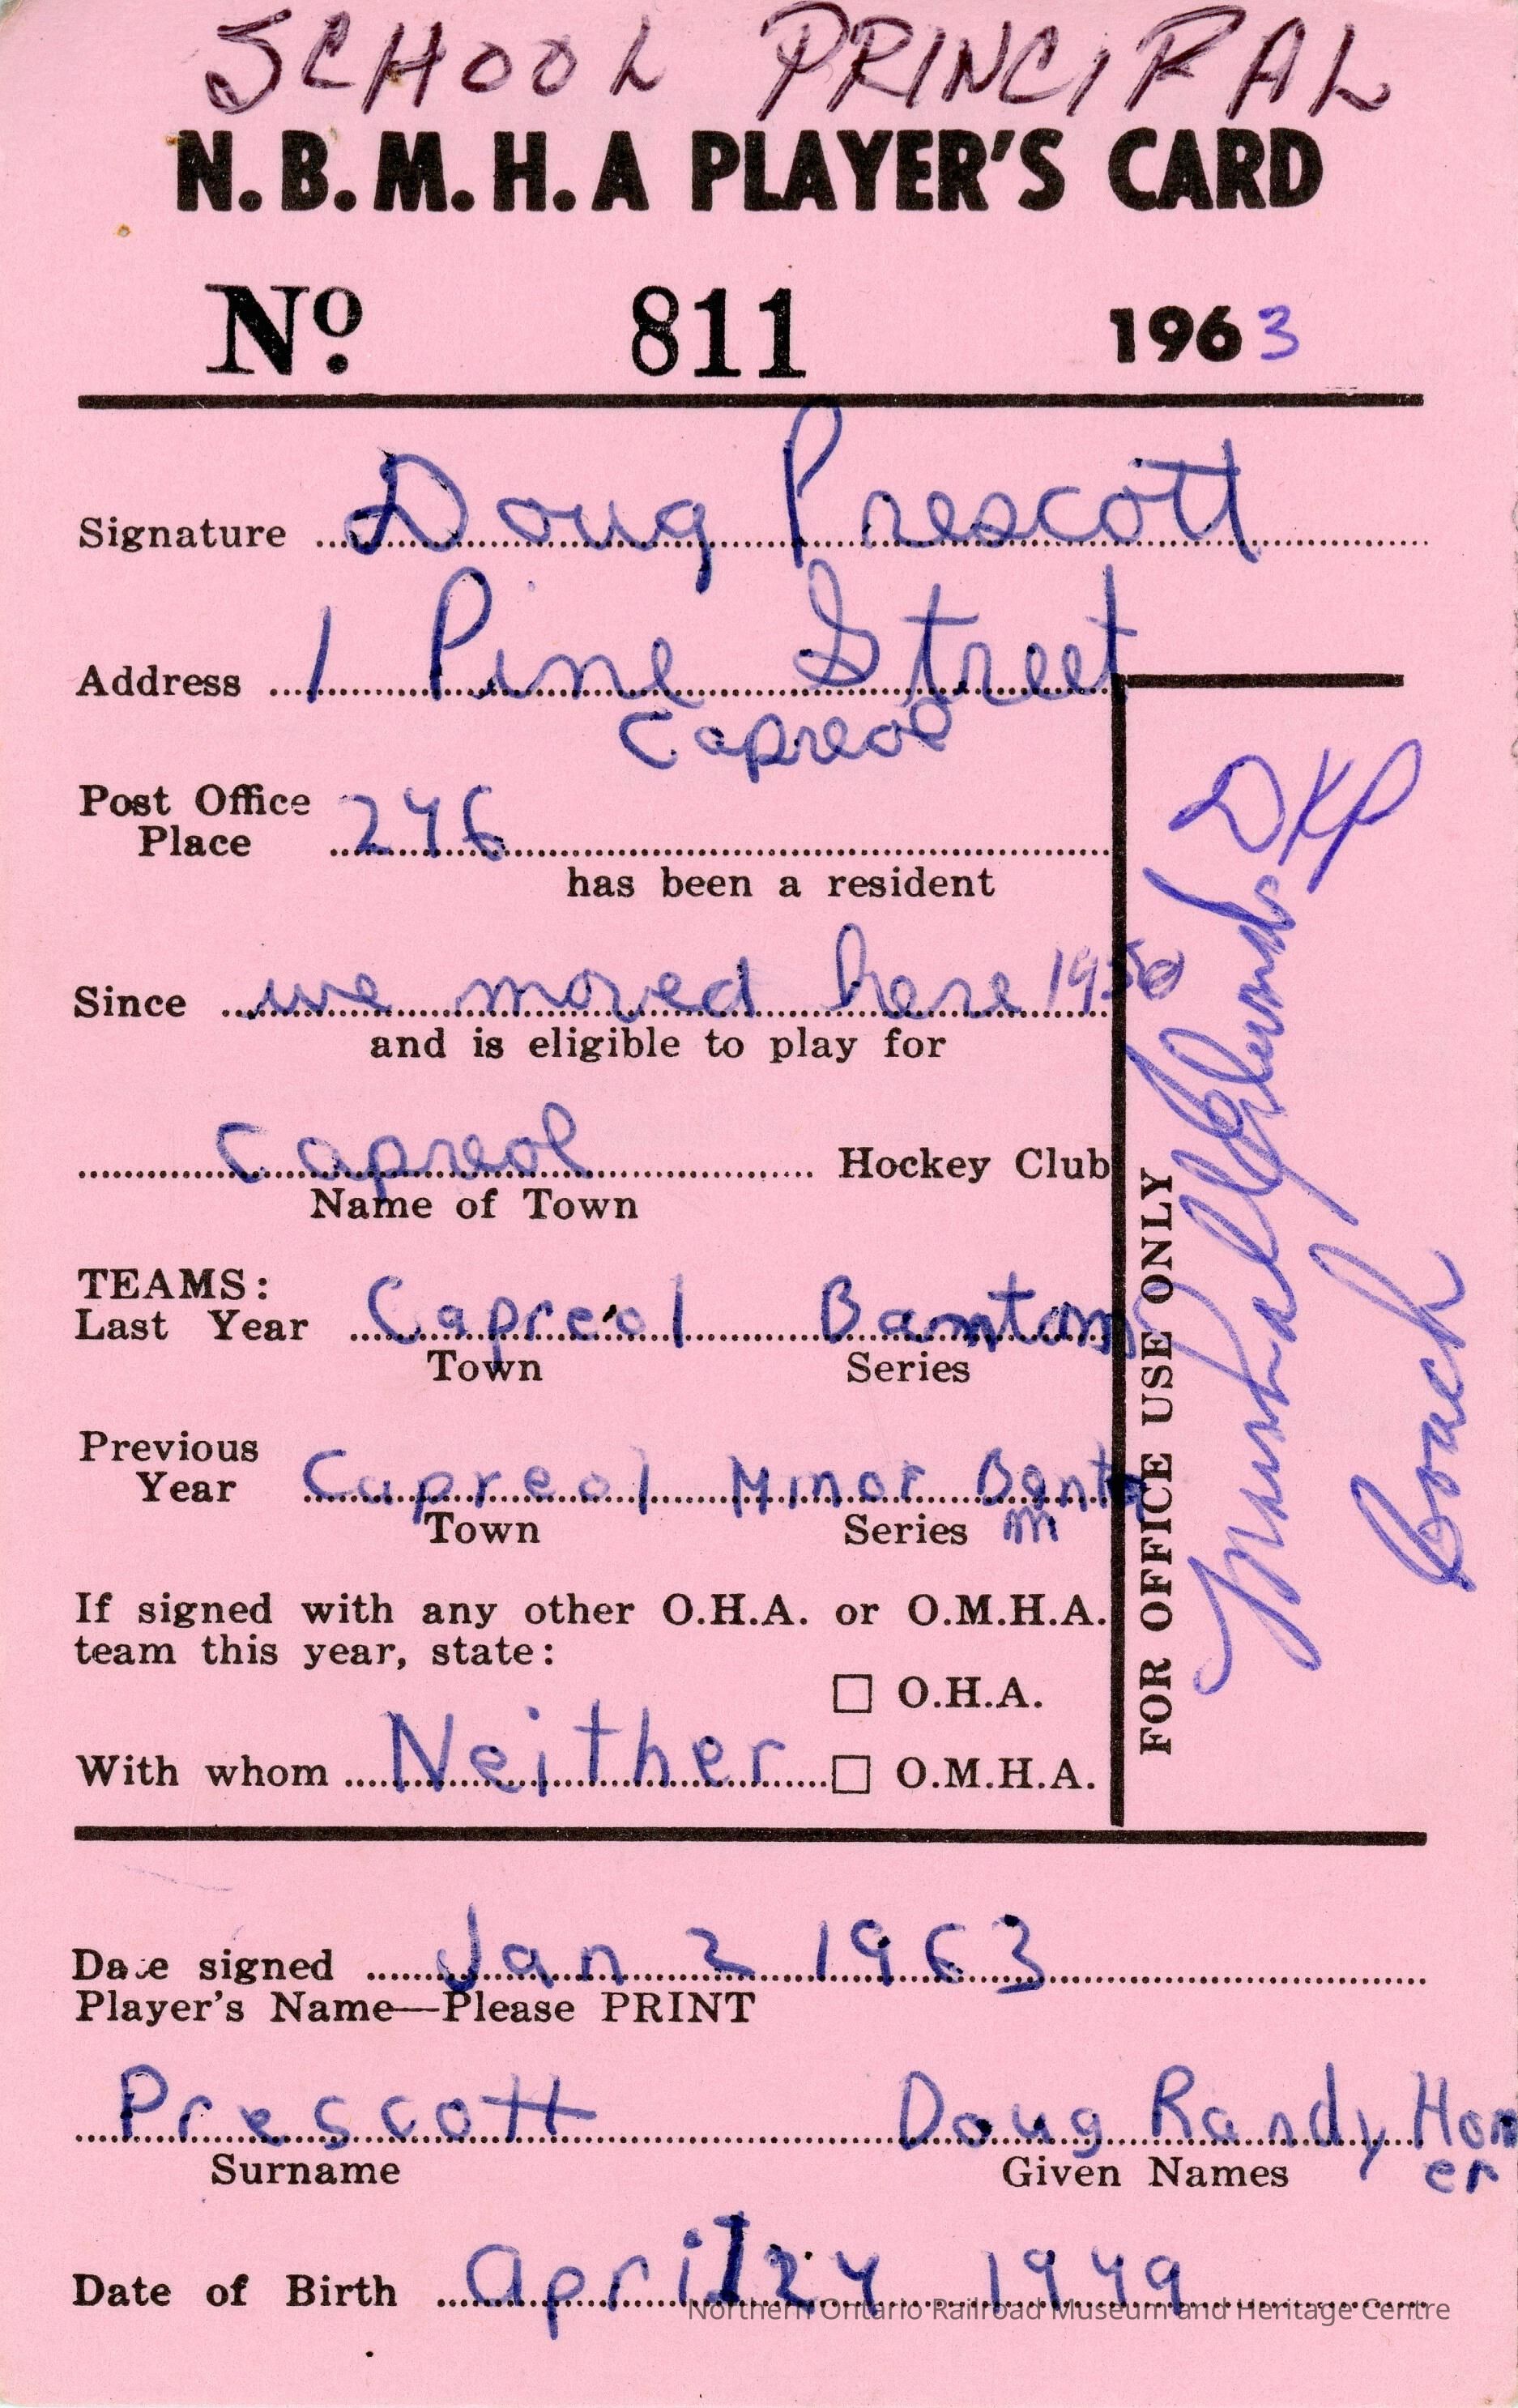 SCHOOL PRINCIPAL
N.B.M.H.A PLAYER'S CARD
No. 811 1963
Signature Doug Prescott
Address 1 Pine Street
Capreol
Post Office
Place 246
has been a resident
Since we moved here 1950
and is eligible to play for
Capreol Hockey Club
Name of Town
TEAMS:
Last Year Capreol Bamtam
Town Series
Previous
Year Capreol Minor Banta
m
Town Series
If signed with any other O.H.A. or O.M.H.A.
team this year, state:
O.H.A.
With whom Neither O.M.H.A.
FOR OFFICE USE ONLY
DKP
Coach
Date signed Jan 2 1963
Player's Name—Please PRINT
Prescott Doug Randy Hom
er
Surname Given Names
Date of Birth April 24 1949
Northern Ontario Railroad Museum and Heritage Centre